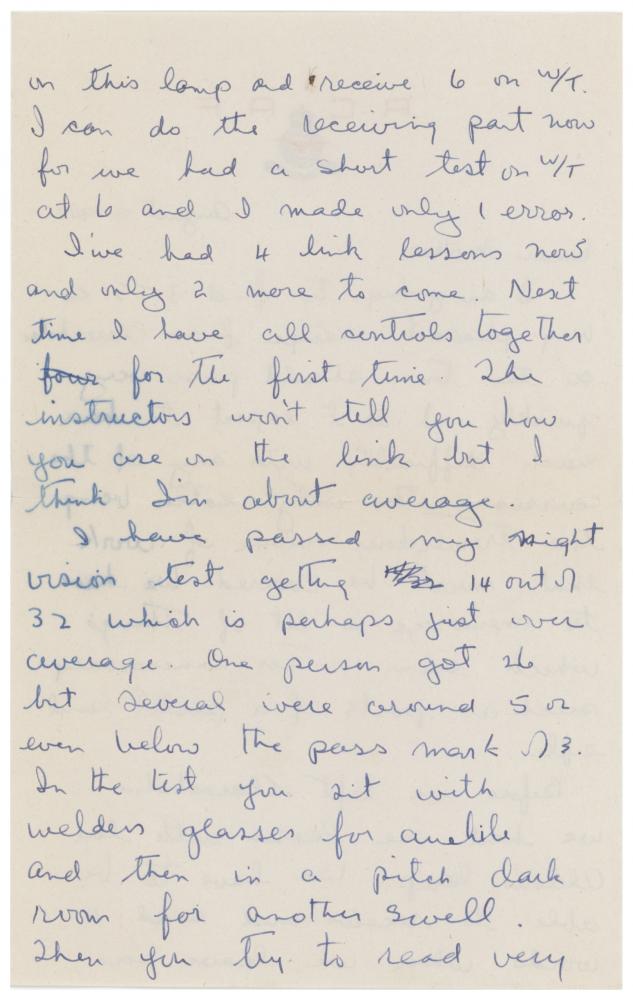 on this lamp and receive 6 on W/T.
I can do the receiving part now
for we had a short test on W/T
at 6 and I made only 1 error.
I've had 4 link lessons now
and only 2 more to come. Next
time I have all controls together
four for the first time. The
instructors won't tell you how
you are on the link but I
think I'm about average.
I have passed my night
vision test getting 14 out of
32 which is perhaps just over
average. One person got 26
but several were around 5 or
even below the pass mark of 3.
In the test you sit with
welders glasses for awhile
and then in a pitch dark
room for another swell.
Then you try to read very